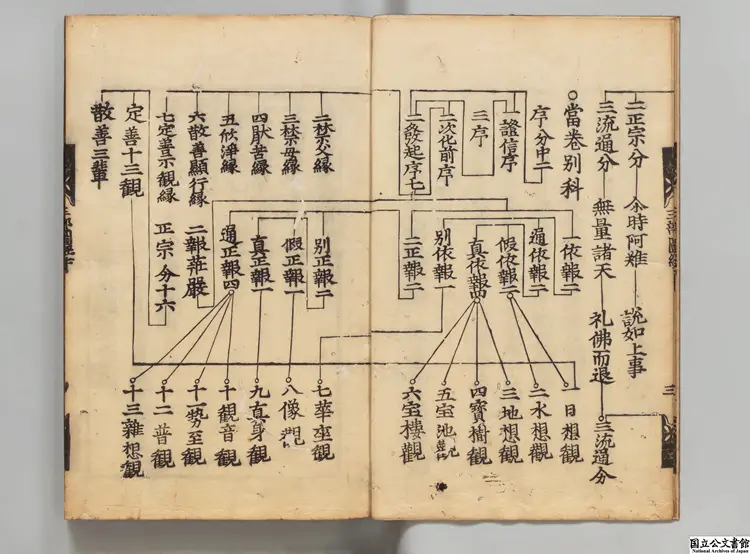 二正宗分
尒時阿難
説如上事
三流通分
無量諸天
礼佛而退
三流通分
當卷別科
序分中二
證信序
三序
二次化前序
二發起序七
一依報二
通依報二
假依報二
真依報四
別依報一
二正報二
一日想觀
二水想觀
三地想觀
四寳樹觀
五宝池
六宝樓觀
二禁父縁
三禁母縁
四猒苦縁
五欣淨縁
六散善顯行縁
七定善示觀縁
定善十三觀
散善三輩
別正報二
假正報一
真正報一
通正報四
二報莊嚴
正宗分十六
七華座觀
八像觀
九真身觀
十觀音觀
十一勢至觀
十二普觀
十三雜想觀
三
国立公文書館
National Archives of Japan